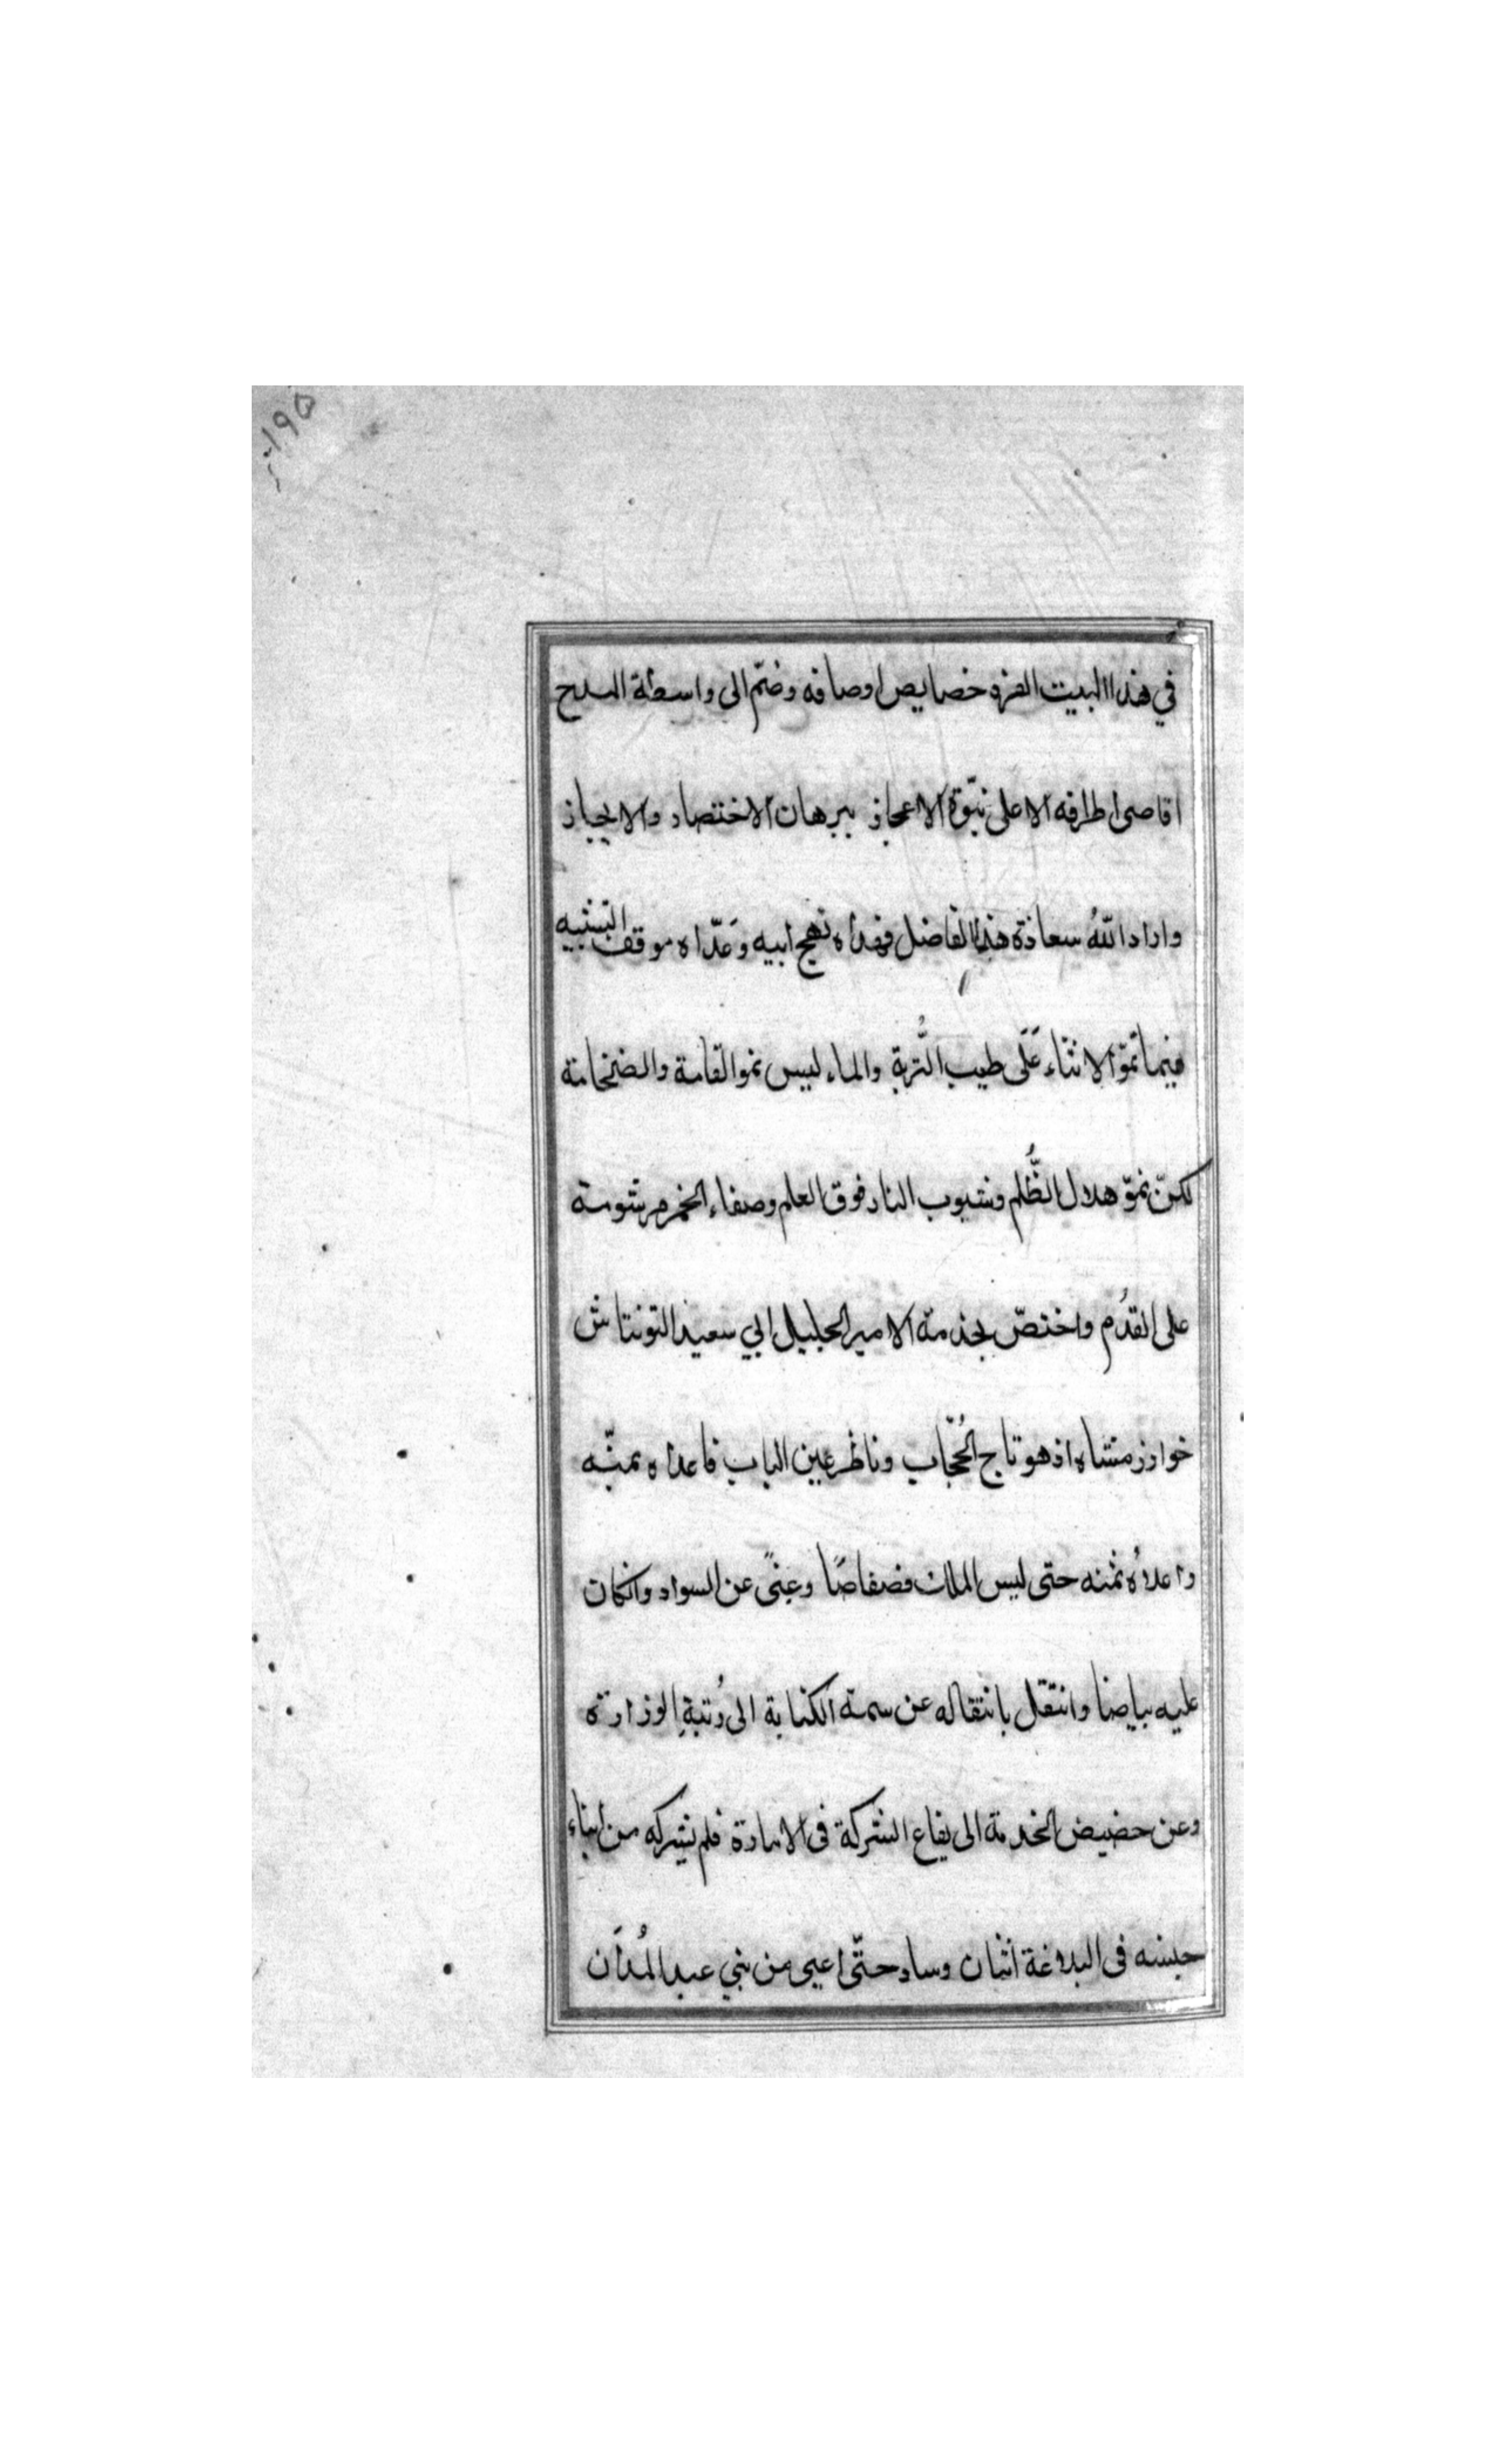 ١٩٥
في هذا البيت الفزه خصايص اوصافه وضم الى واسطة المدح
اقاصى اطرافه الا على نبوة الاعجاز ببرهان الاختصار والايجاز
واراد اللهُ سعادة هذا الفاضل فهداه نهج ابيه وعَدّاه موقف التشبيه
فيما نموّ الانثاء عَلَى طيب التُّربة والماء ليس نمو القامة والضخامة
لكنّ نموّ هلال الظُّلم وشبوب النار فوق العلم وصفاء الخمر مرشومة
على القدُم واختصّ بخدمة الامير الجليل ابي سعيد التونتاش
خوارزمشاه اذ هو تاج الحُجّاب وناظر عين الباب فاعداه بمنّه
واعلاُه ثمنه حتى لبس الملك فضفاضًا وغِنًى عن السواد وانكان
عليه بياضا وانتقل بانتقاله عن سمة الكتابة الى رُتبةِ الوزارة
وعن حضيض الخدمة الى يفاع الشركة فى الامارة فلم يشركه من ابناء
جنسه فى البلاغة اثنان وساد حتّى اعيى من بني عبد المُدَان